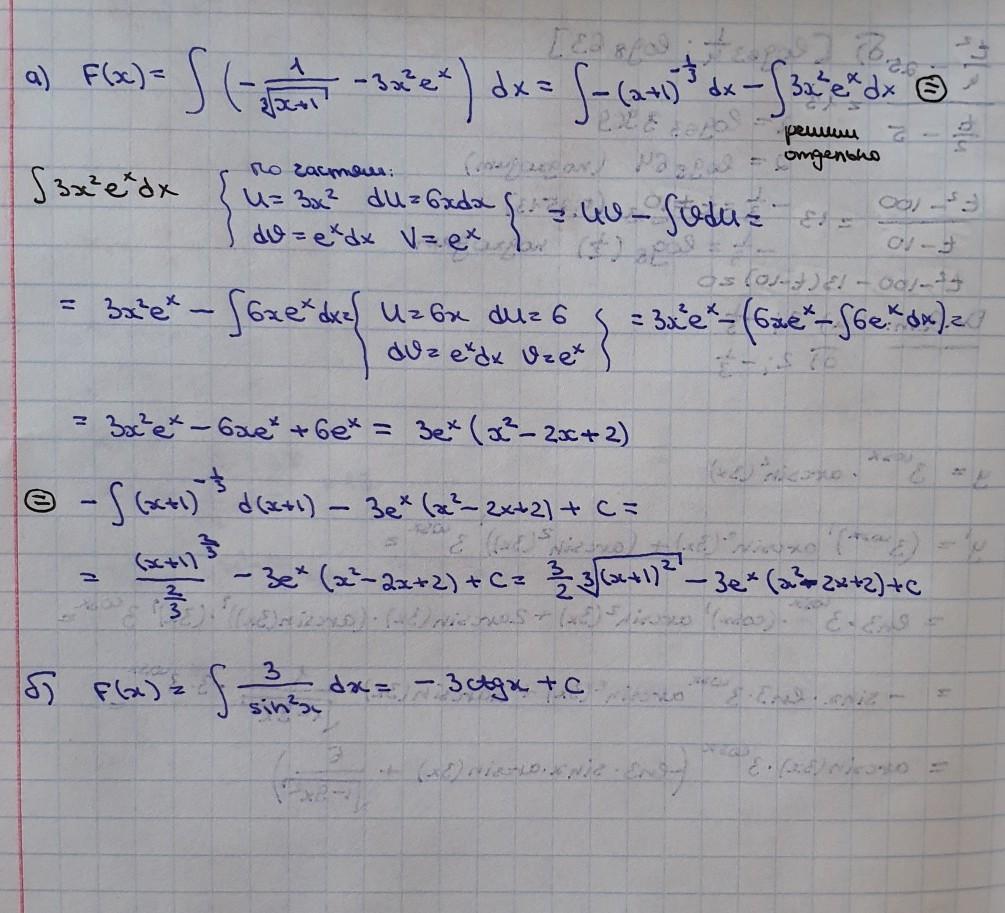 а) F(x) = ∫ (− 1/∛(x+1) − 3x²eˣ) dx = ∫ −(x+1)^(−1/3) dx − ∫ 3x²eˣ dx ⊜
решим
отдельно
∫ 3x²eˣ dx { по частям:
u = 3x² du = 6xdx
dv = eˣdx v = eˣ } = uv − ∫ vdu =
= 3x²eˣ − ∫ 6xeˣ dx = { u = 6x du = 6
dv = eˣdx v = eˣ } = 3x²eˣ − (6xeˣ − ∫ 6eˣ dx) =
= 3x²eˣ − 6xeˣ + 6eˣ = 3eˣ (x² − 2x + 2)
⊜ − ∫ (x+1)^(−1/3) d(x+1) − 3eˣ (x² − 2x + 2) + C =
= (x+1)^(2/3) / (2/3) − 3eˣ (x² − 2x + 2) + C = 3/2 ∛((x+1)²) − 3eˣ (x² − 2x + 2) + C
б) F(x) = ∫ 3/sin²x dx = − 3ctgx + C